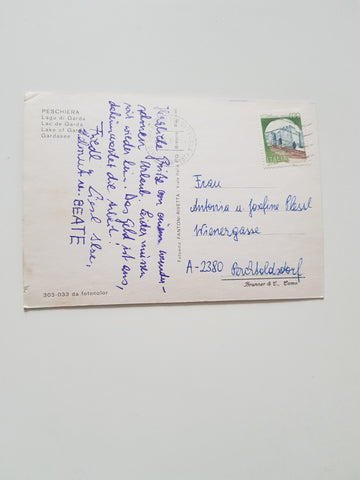 PESCHIERA
Lago di Garda
Lac de Garda
Lake of Garda
Gardasee
Herzliche Grüße von einem wunder-
schönen Urlaub. Leider müssen
wir wieder heim. Das Geld ist aus,
daheim wartet die Arbeit!
Fredl
BEATE
ITALIA
Frau
Antonia u. Josefine
Wienergasse
A-2380 Perchtoldsdorf
Brunner & C. Como
Fotoediz. FANTONI-RIVETTA
303-033 da fotocolor